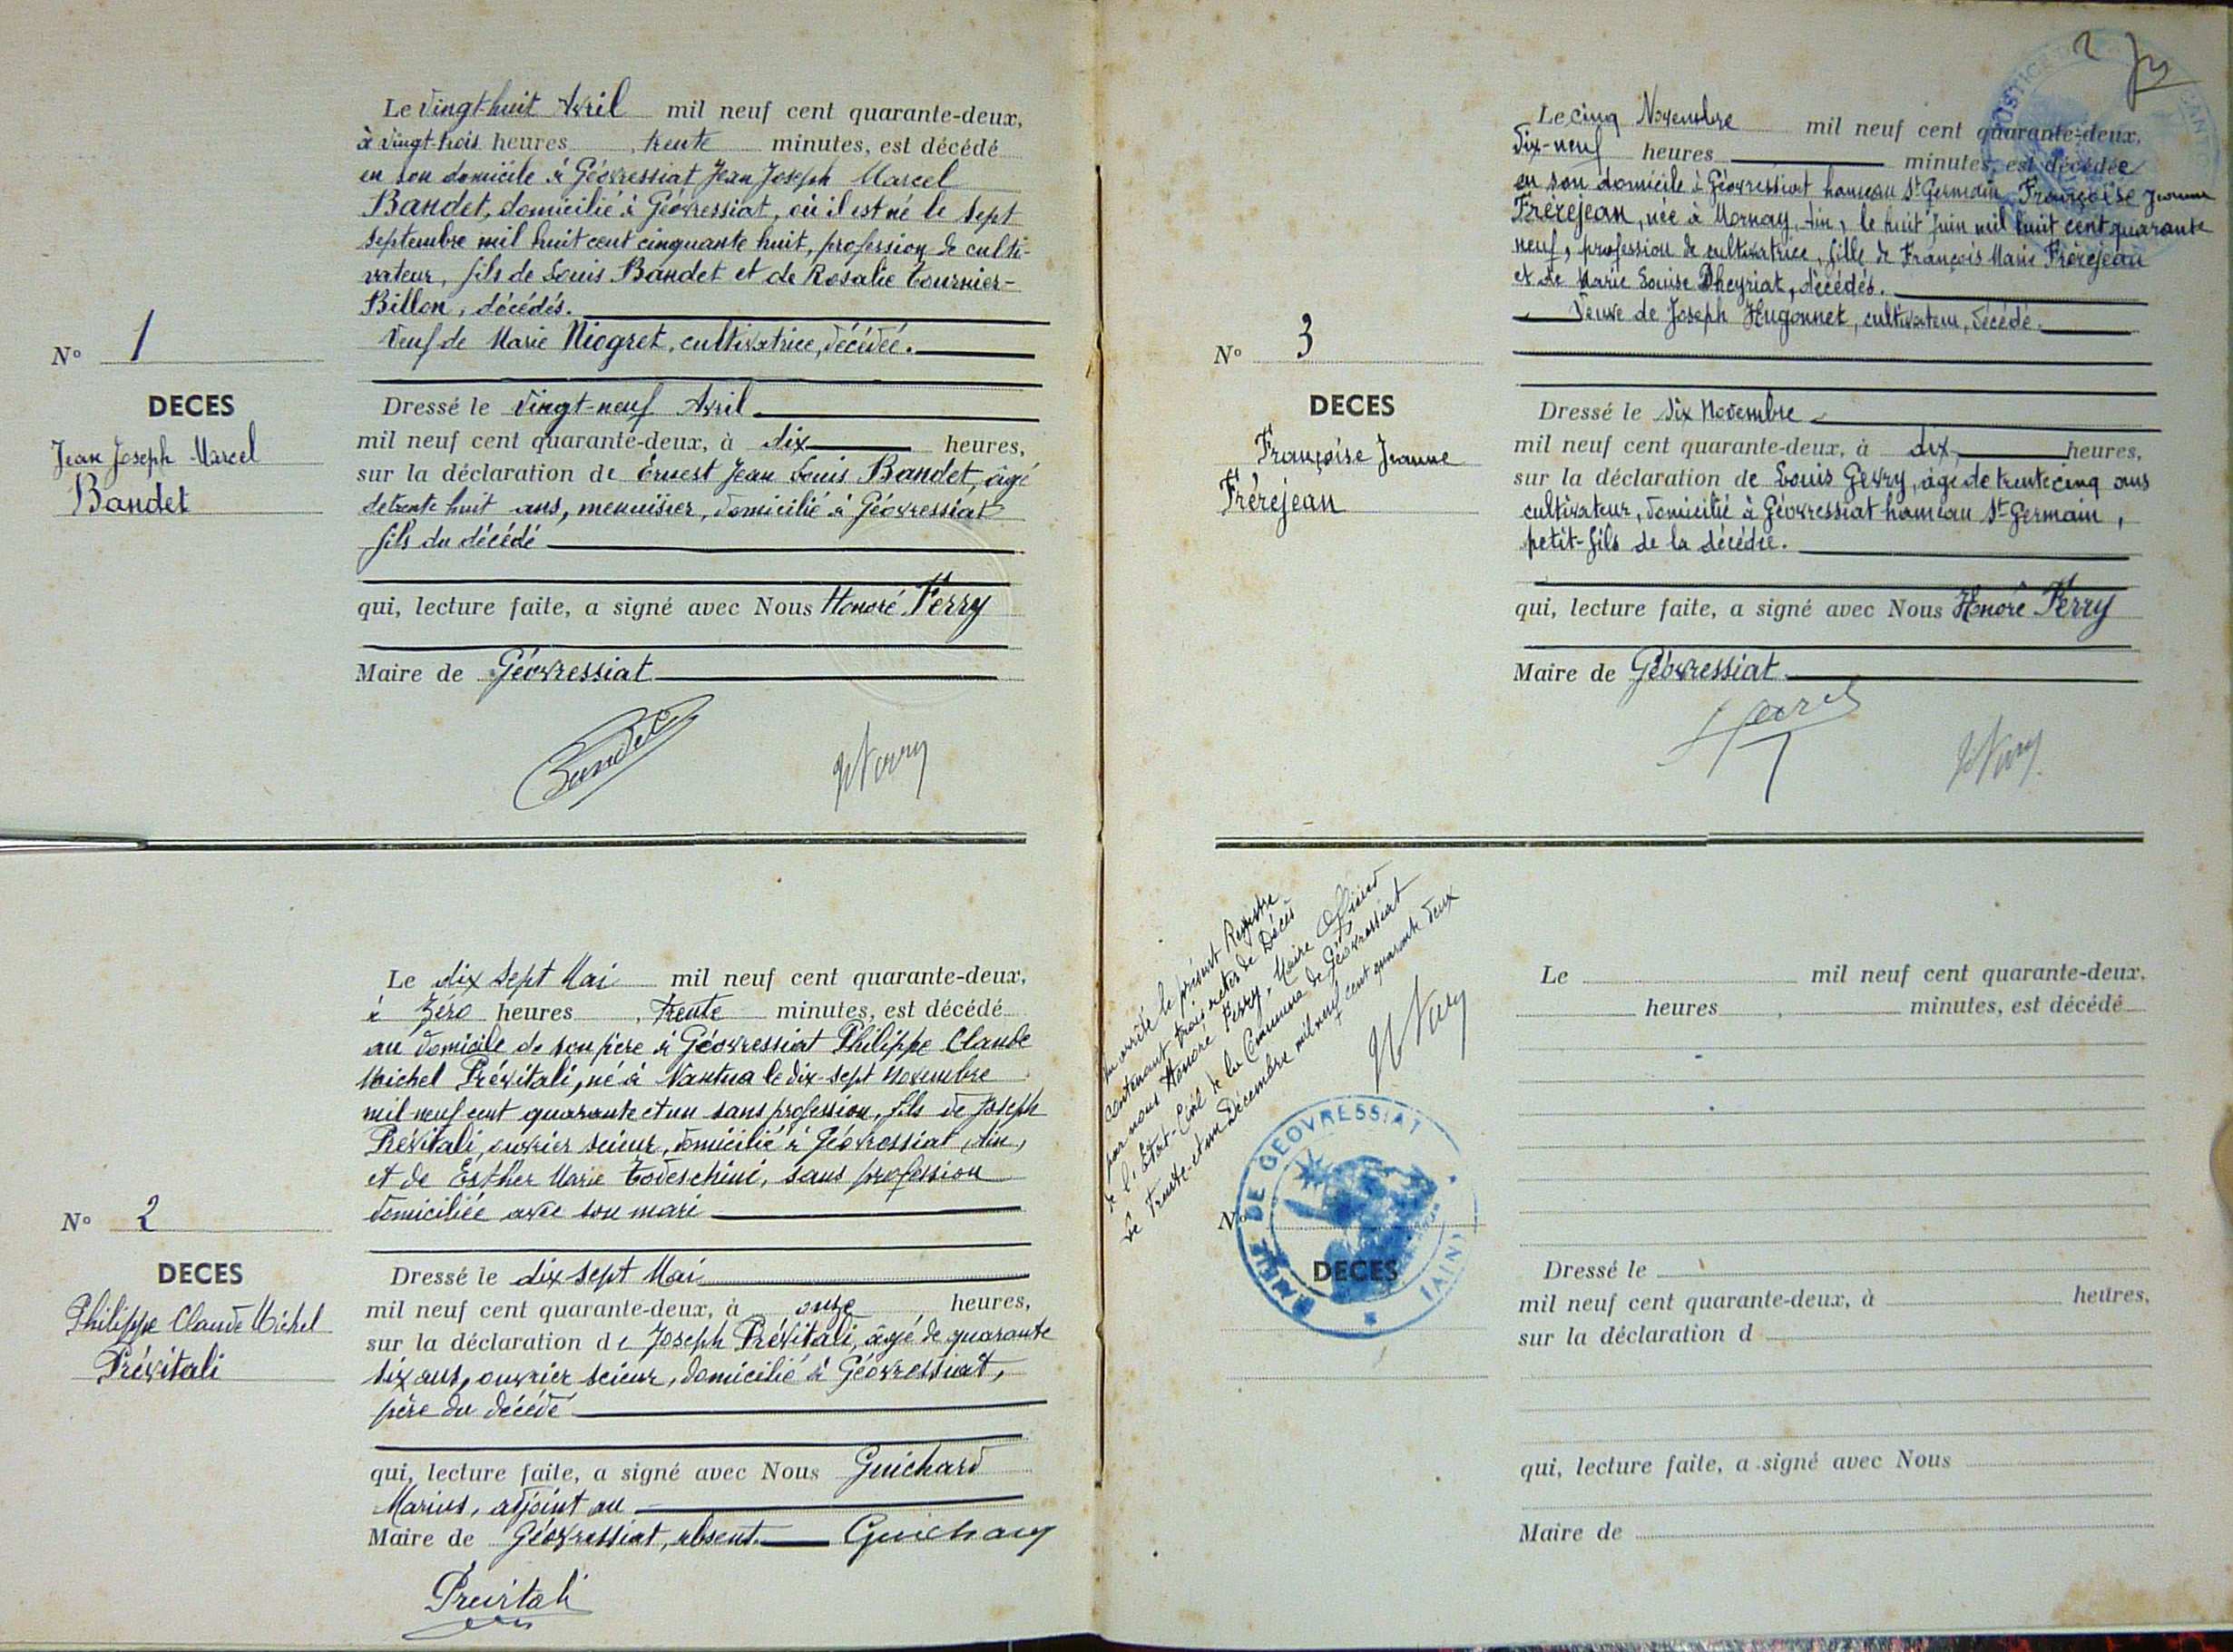 Le Vingt-huit Avril mil neuf cent quarante-deux,
à vingt-trois heures, trente minutes, est décédé
en son domicile à Géovressiat Jean Joseph Marcel
Bandet, domicilié à Géovressiat, où il est né le sept
septembre mil huit cent cinquante huit, profession de culti-
vateur, fils de Louis Bandet et de Rosalie Tournier-
Billon, décédés.
Veuf de Marie Niogret, cultivatrice, décédée.
N° 1
DECES
Jean Joseph Marcel
Bandet
Dressé le Vingt-neuf Avril
mil neuf cent quarante-deux, à dix heures,
sur la déclaration de Ernest Jean Louis Bandet, âgé
de trente huit ans, menuisier, domicilié à Géovressiat
fils du décédé
qui, lecture faite, a signé avec Nous Honoré Ferry
Maire de Géovressiat
Bandet
HFerry
Le dix sept Mai mil neuf cent quarante-deux,
à Zéro heures, trente minutes, est décédé
au domicile de son père à Géovressiat Philippe Claude
Michel Prévitali, né à Nantua le dix-sept Novembre
mil neuf cent quarante et un sans profession, fils de Joseph
Prévitali, ouvrier scieur, domicilié à Géovressiat, Ain,
et de Esther Marie Todeschini, sans profession
domiciliée avec son mari
N° 2
DECES
Philippe Claude Michel
Prévitali
Dressé le dix sept Mai
mil neuf cent quarante-deux, à onze heures,
sur la déclaration de Joseph Prévitali, âgé de quarante
six ans, ouvrier scieur, domicilié à Géovressiat,
père du décédé
qui, lecture faite, a signé avec Nous Guichard
Marius, adjoint au
Maire de Géovressiat, absent. Guichard
Previtali
2
Le cinq Novembre mil neuf cent quarante-deux,
dix-neuf heures minutes, est décédée
en son domicile à Géovressiat hameau St Germain Françoise Jeanne
Frèrejean, née à Mornay, Ain, le huit Juin mil huit cent quarante
neuf, profession de cultivatrice, fille de François Marie Frèrejean
et de Marie Louise Dheyriat, décédés.
Veuve de Joseph Hugonnet, cultivateur, décédé.
N° 3
DECES
Françoise Jeanne
Frèrejean
Dressé le Six Novembre
mil neuf cent quarante-deux, à dix heures,
sur la déclaration de Louis Gevry, âgé de trente cinq ans
cultivateur, domicilié à Géovressiat hameau St Germain,
petit-fils de la décédée.
qui, lecture faite, a signé avec Nous Honoré Ferry
Maire de Géovressiat
Gevry
HFerry
arrêté le présent Registre
contenant trois actes de Décès
par nous Honoré Ferry, Maire Officier
de l'Etat-Civil de la Commune de Géovressiat
le Trente-et-un Décembre mil neuf cent quarante deux
HFerry
MAIRIE DE GEOVRESSIAT (AIN)
N°
DECES
Le mil neuf cent quarante-deux,
heures, minutes, est décédé
Dressé le
mil neuf cent quarante-deux, à heures,
sur la déclaration d
qui, lecture faite, a signé avec Nous
Maire de